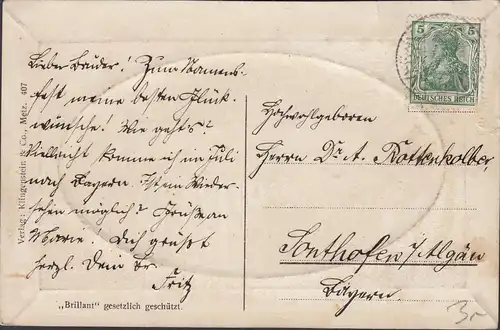 Lieber Bruder! Zum Namens-
fest meine besten Glück-
wünsche! Wie geht's?
Vielleicht komme ich im Juli
nach Bayern. Ist ein Wieder-
sehen möglich? Grüße an
Marie! Dich grüßt
herzl. Dein Br.
Fritz
Verlag: Klingenstein & Co., Metz. 407
„Brillant" gesetzlich geschützt.
5 5
DEUTSCHES REICH
Hochwohlgeboren
Herrn Dr. A. Rottenkolber,
Sonthofen i/Algäu
Bayern.